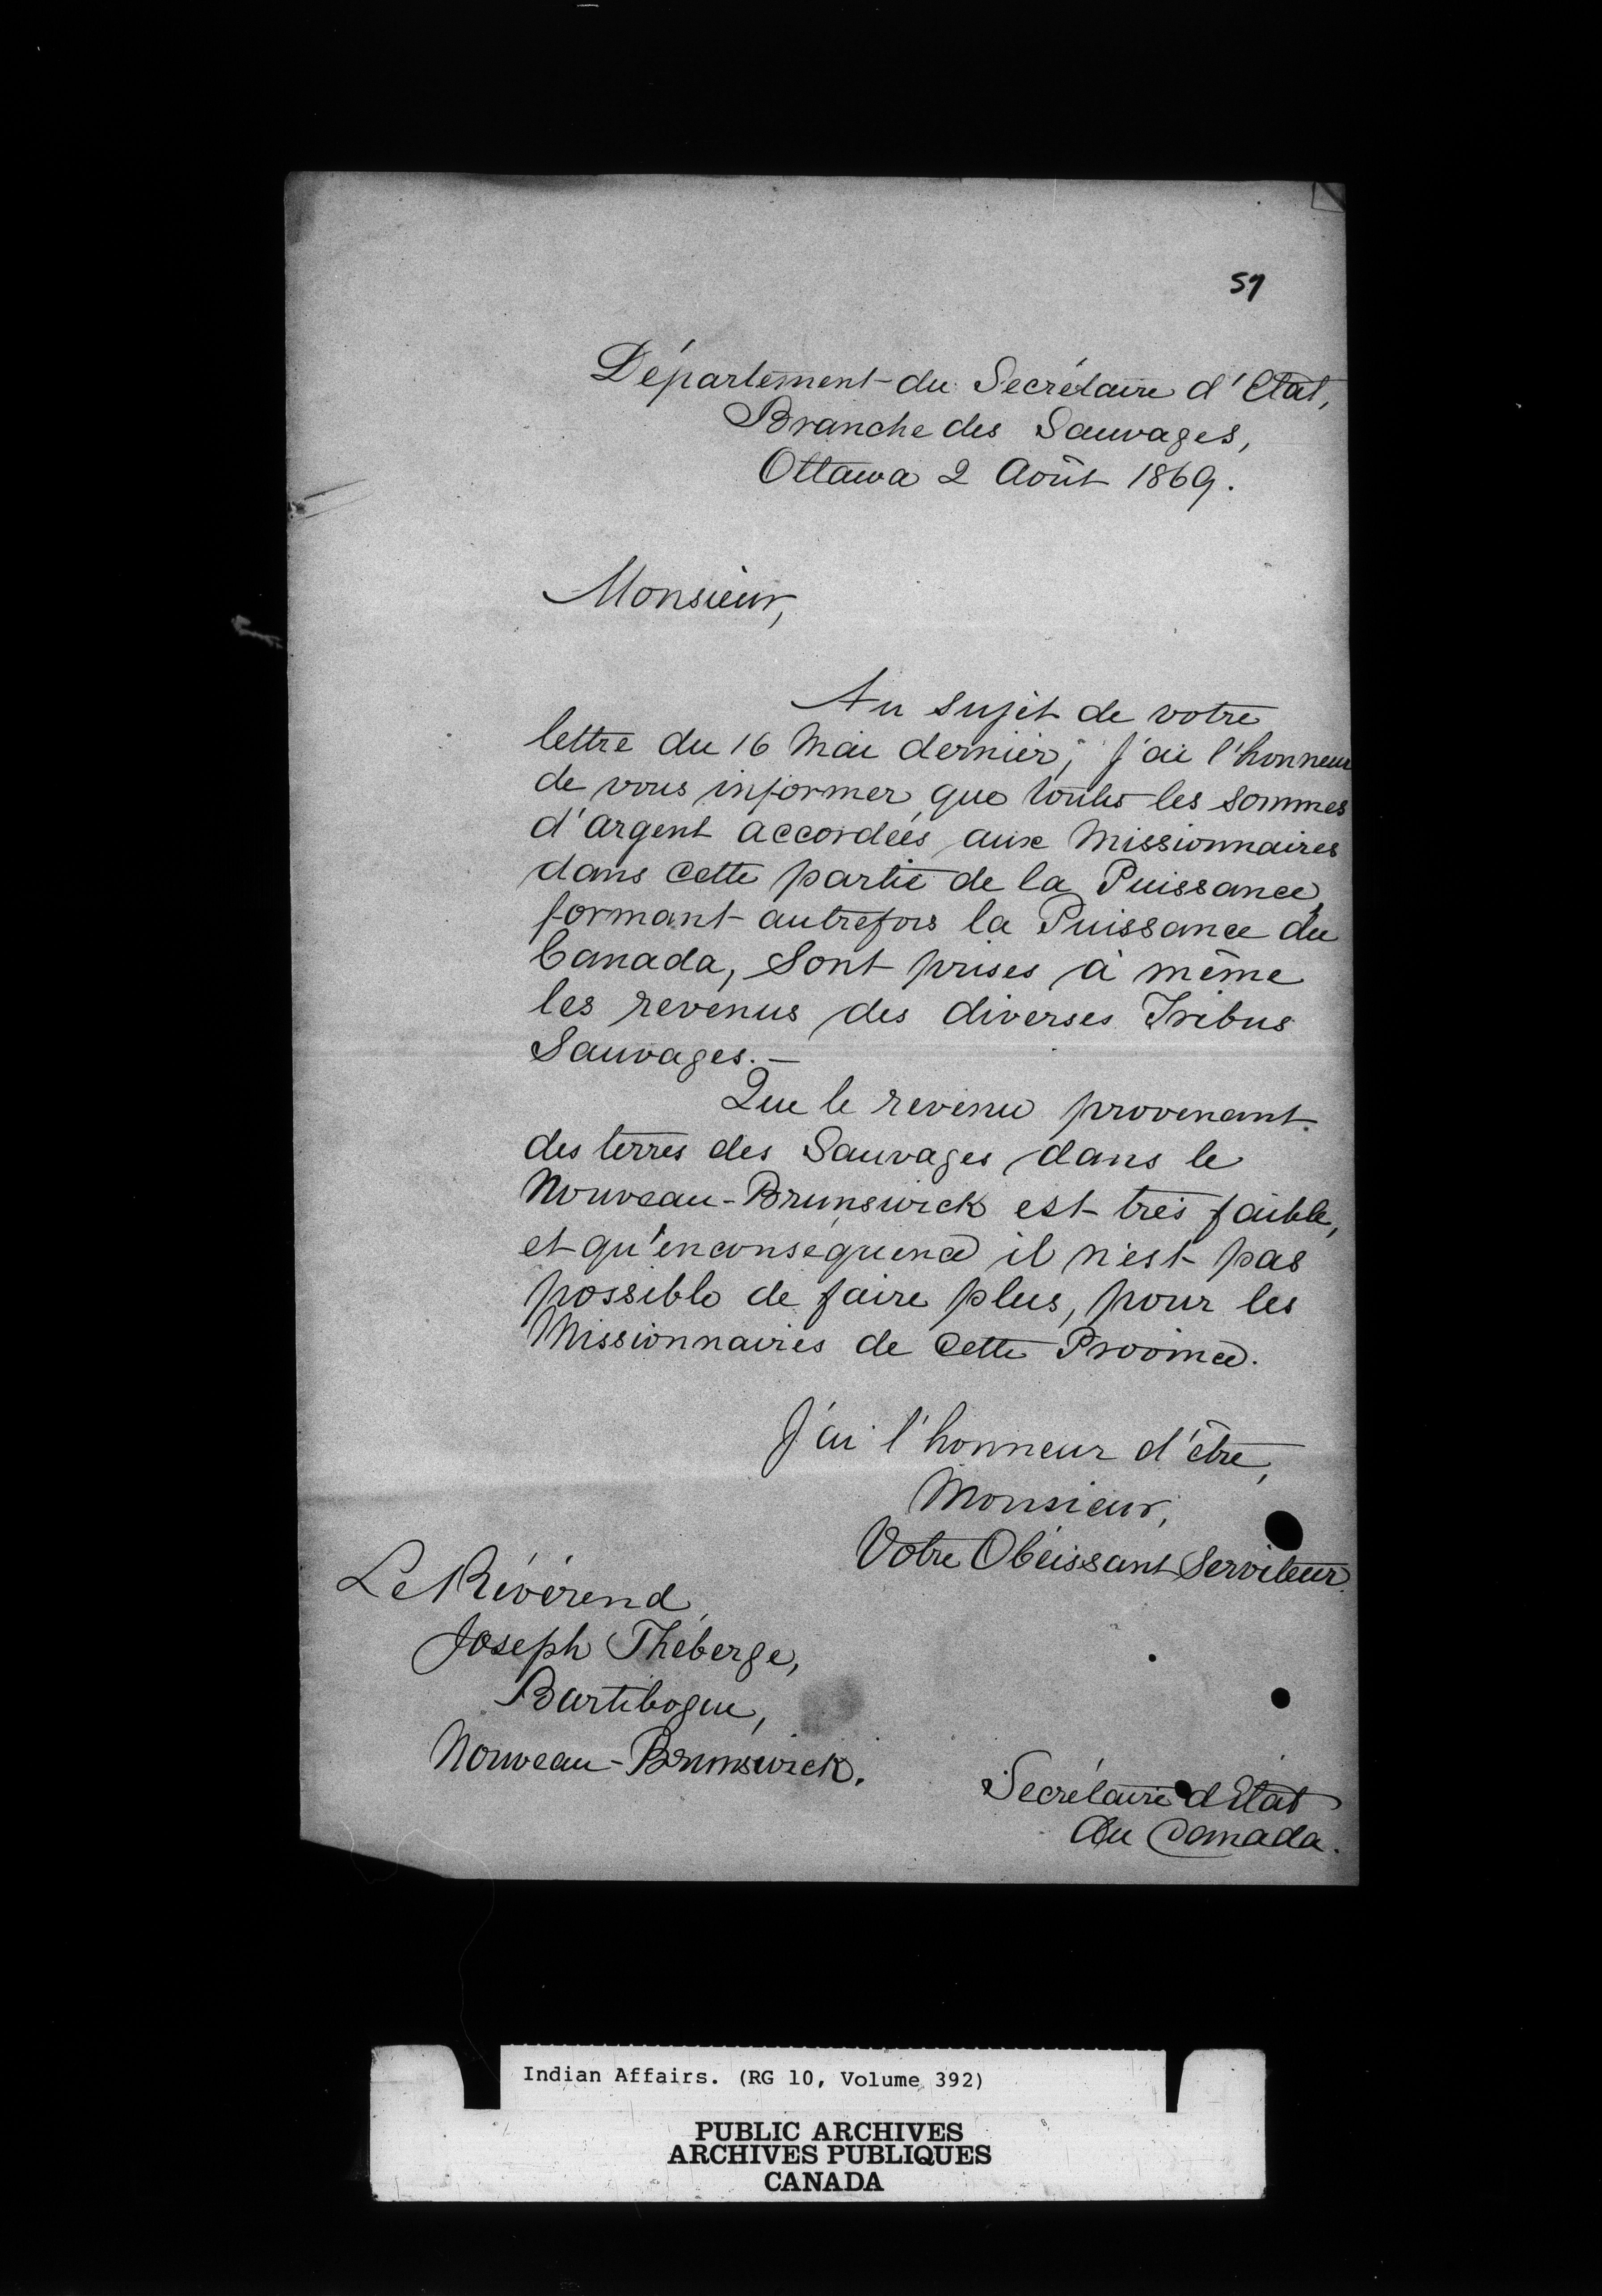 59
Département du Secrétaire d'Etat,
Branche des Sauvages,
Ottawa 2 Août 1869.
Monsieur,
Au sujet de votre
lettre du 16 Mai dernier, j'ai l'honneur
de vous informer que toutes les sommes
d'argent accordées aux Missionnaires
dans cette partie de la Puissance,
formant autrefois la Puissance du
Canada, sont prises à même
les revenus des diverses Tribus
Sauvages.—
Que le revenu provenant
des terres des Sauvages dans le
Nouveau-Brunswick est très faible,
et qu'en consequence il n'est pas
possible de faire plus, pour les
Missionnaires de cette Province.
J'ai l'honneur d'être,
Monsieur,
Votre Obéissant Serviteur.
Le Révérend
Joseph Théberge,
Bartibogue,
Nouveau-Brunswick.
Secrétaire d'Etat
du Canada.
Indian Affairs. (RG 10, Volume 392)
PUBLIC ARCHIVES
ARCHIVES PUBLIQUES
CANADA